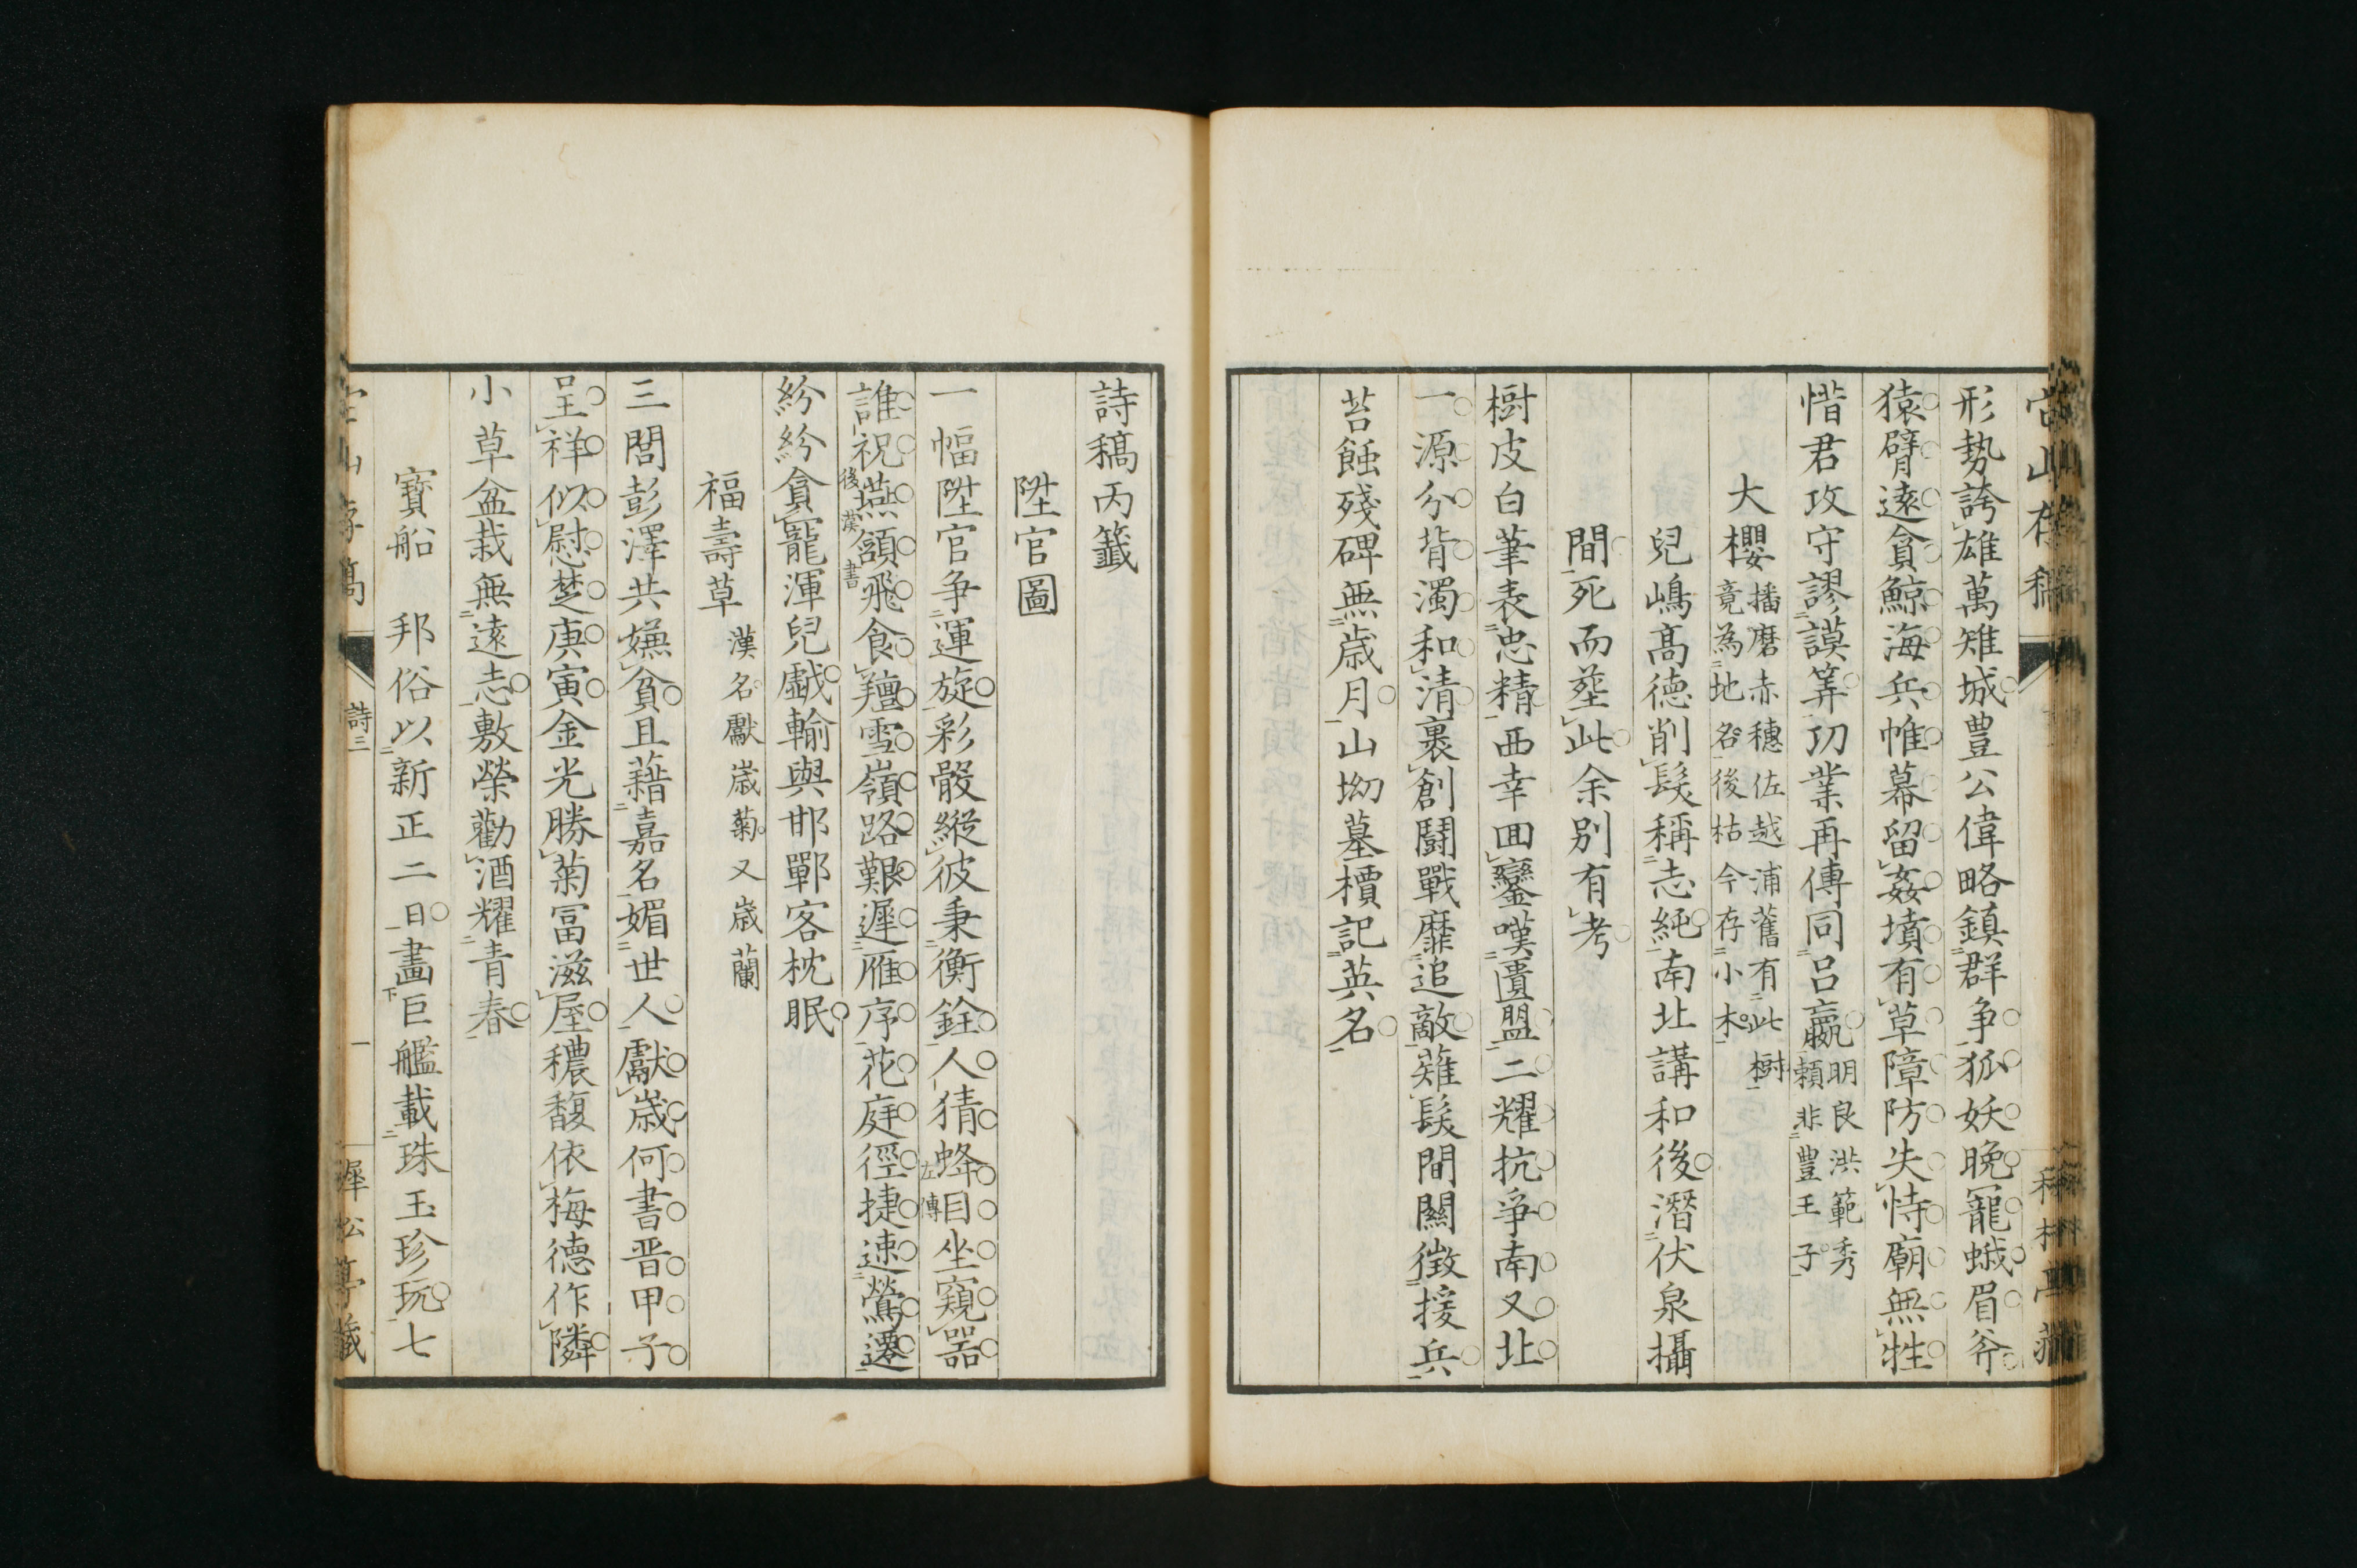 形勢誇雄萬雉城豊公偉略鎮群争狐妖晩寵蛾眉斧
猿臂遠貪鯨海兵帷幕留姦墳有草障防失恃廟無牲
惜君攻守謬謨筭功業再傳同呂嬴明良洪範秀
頼非豊王子
大櫻播磨赤穗佐越浦舊有此樹
竟為地名後枯今存小木
兒嶋高德削髮稱志純南北講和後潛伏泉攝
間死而塟此余別有考
樹皮白筆表忠精西幸回鑾嘆匱盟二耀抗爭南又北
一源分背濁和清裹創鬪戰靡追敵薙髮間關徴援兵
苔蝕殘碑無歳月山坳墓櫝記英名
詩稿丙籤
陞官圖
一幅陞官争運旋彩骰縱彼秉衡銓人猜蜂目坐窺器
左傳
誰祝燕頷飛食羶雪嶺路艱遲雁序花庭徑捷速鶯遷
後漢書
紛紛貪寵渾兒戯輸與邯鄲客枕眠
福壽草漢名獻歳菊又歳蘭
三閭彭澤共嫌貧且藉嘉名媚世人獻歳何書晋甲子
呈祥似慰楚庚寅金光勝菊冨滋屋穠馥依梅德作隣
小草盆栽無遠志敷榮勸酒耀青春
寳船邦俗以新正二日畫巨艦載珠玉珍玩七
詩三
一
遲松亭藏